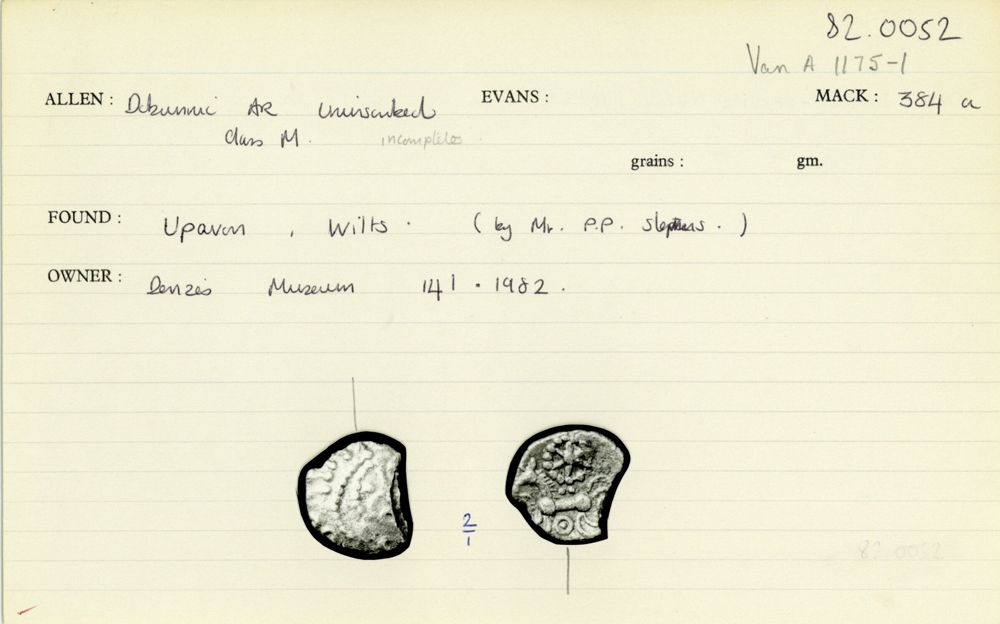 82.0052
Van A 1175-1
ALLEN: Dobunnic AR Uninscribed EVANS: MACK: 384 a
Class M. incomplete.
grains: gm.
FOUND: Upavon, Wilts. (by Mr. P.P. Stephens.)
OWNER: Devizes Museum 141.1982.
2
1
82.0052